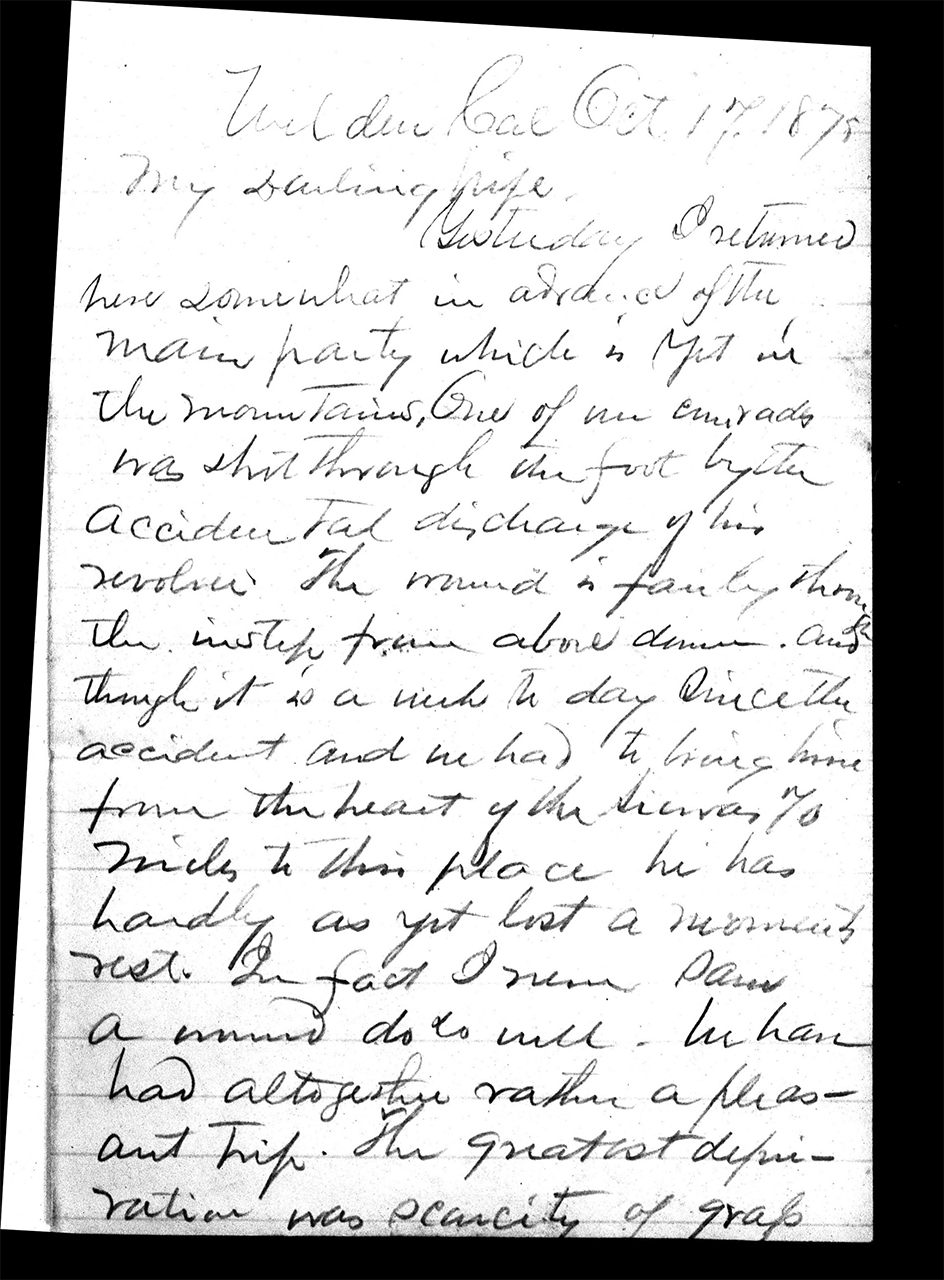 Weldon Cal Oct. 17. 1875
My Darling Wife,
Yesterday I returned
here somewhat in advance of the
main party which is yet in
the mountains. One of our comrads
was shot through the foot by the
accidental discharge of his
revolver The wound is fairly through
the instep from above down. and
though it is a week to day since the
accident and we had to bring him
from the heart of the Sierras 70
miles to this place he has
hardly as yet lost a moments
rest. In fact I never saw
a wound do so well. We have
had altogether rather a pleas-
ant trip. The greatest depri-
vation was scarcity of grass